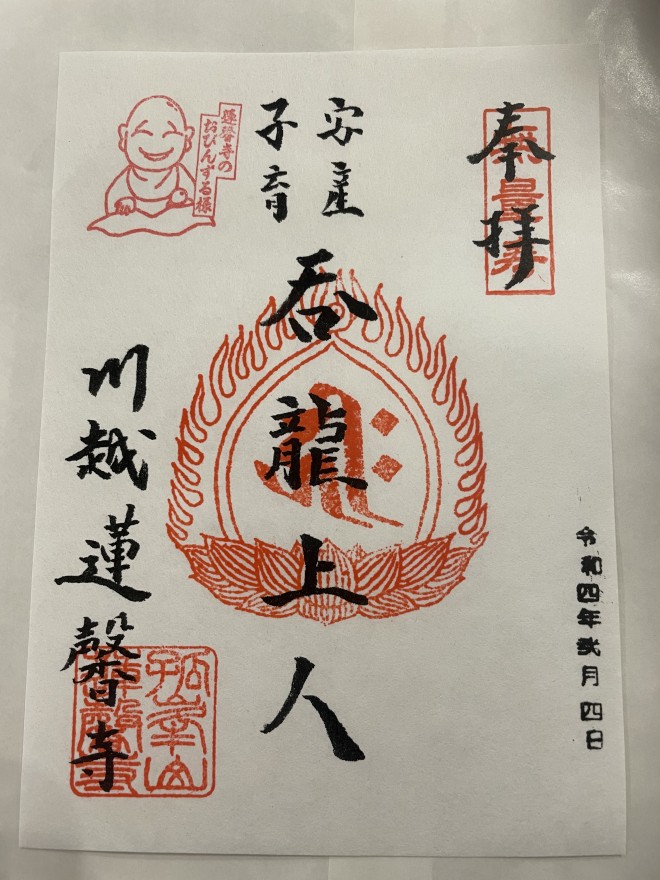 奉拝
令和四年弐月四日
安産
子育
呑龍上人
蓮馨寺の
おびんずる様
川越蓮馨寺